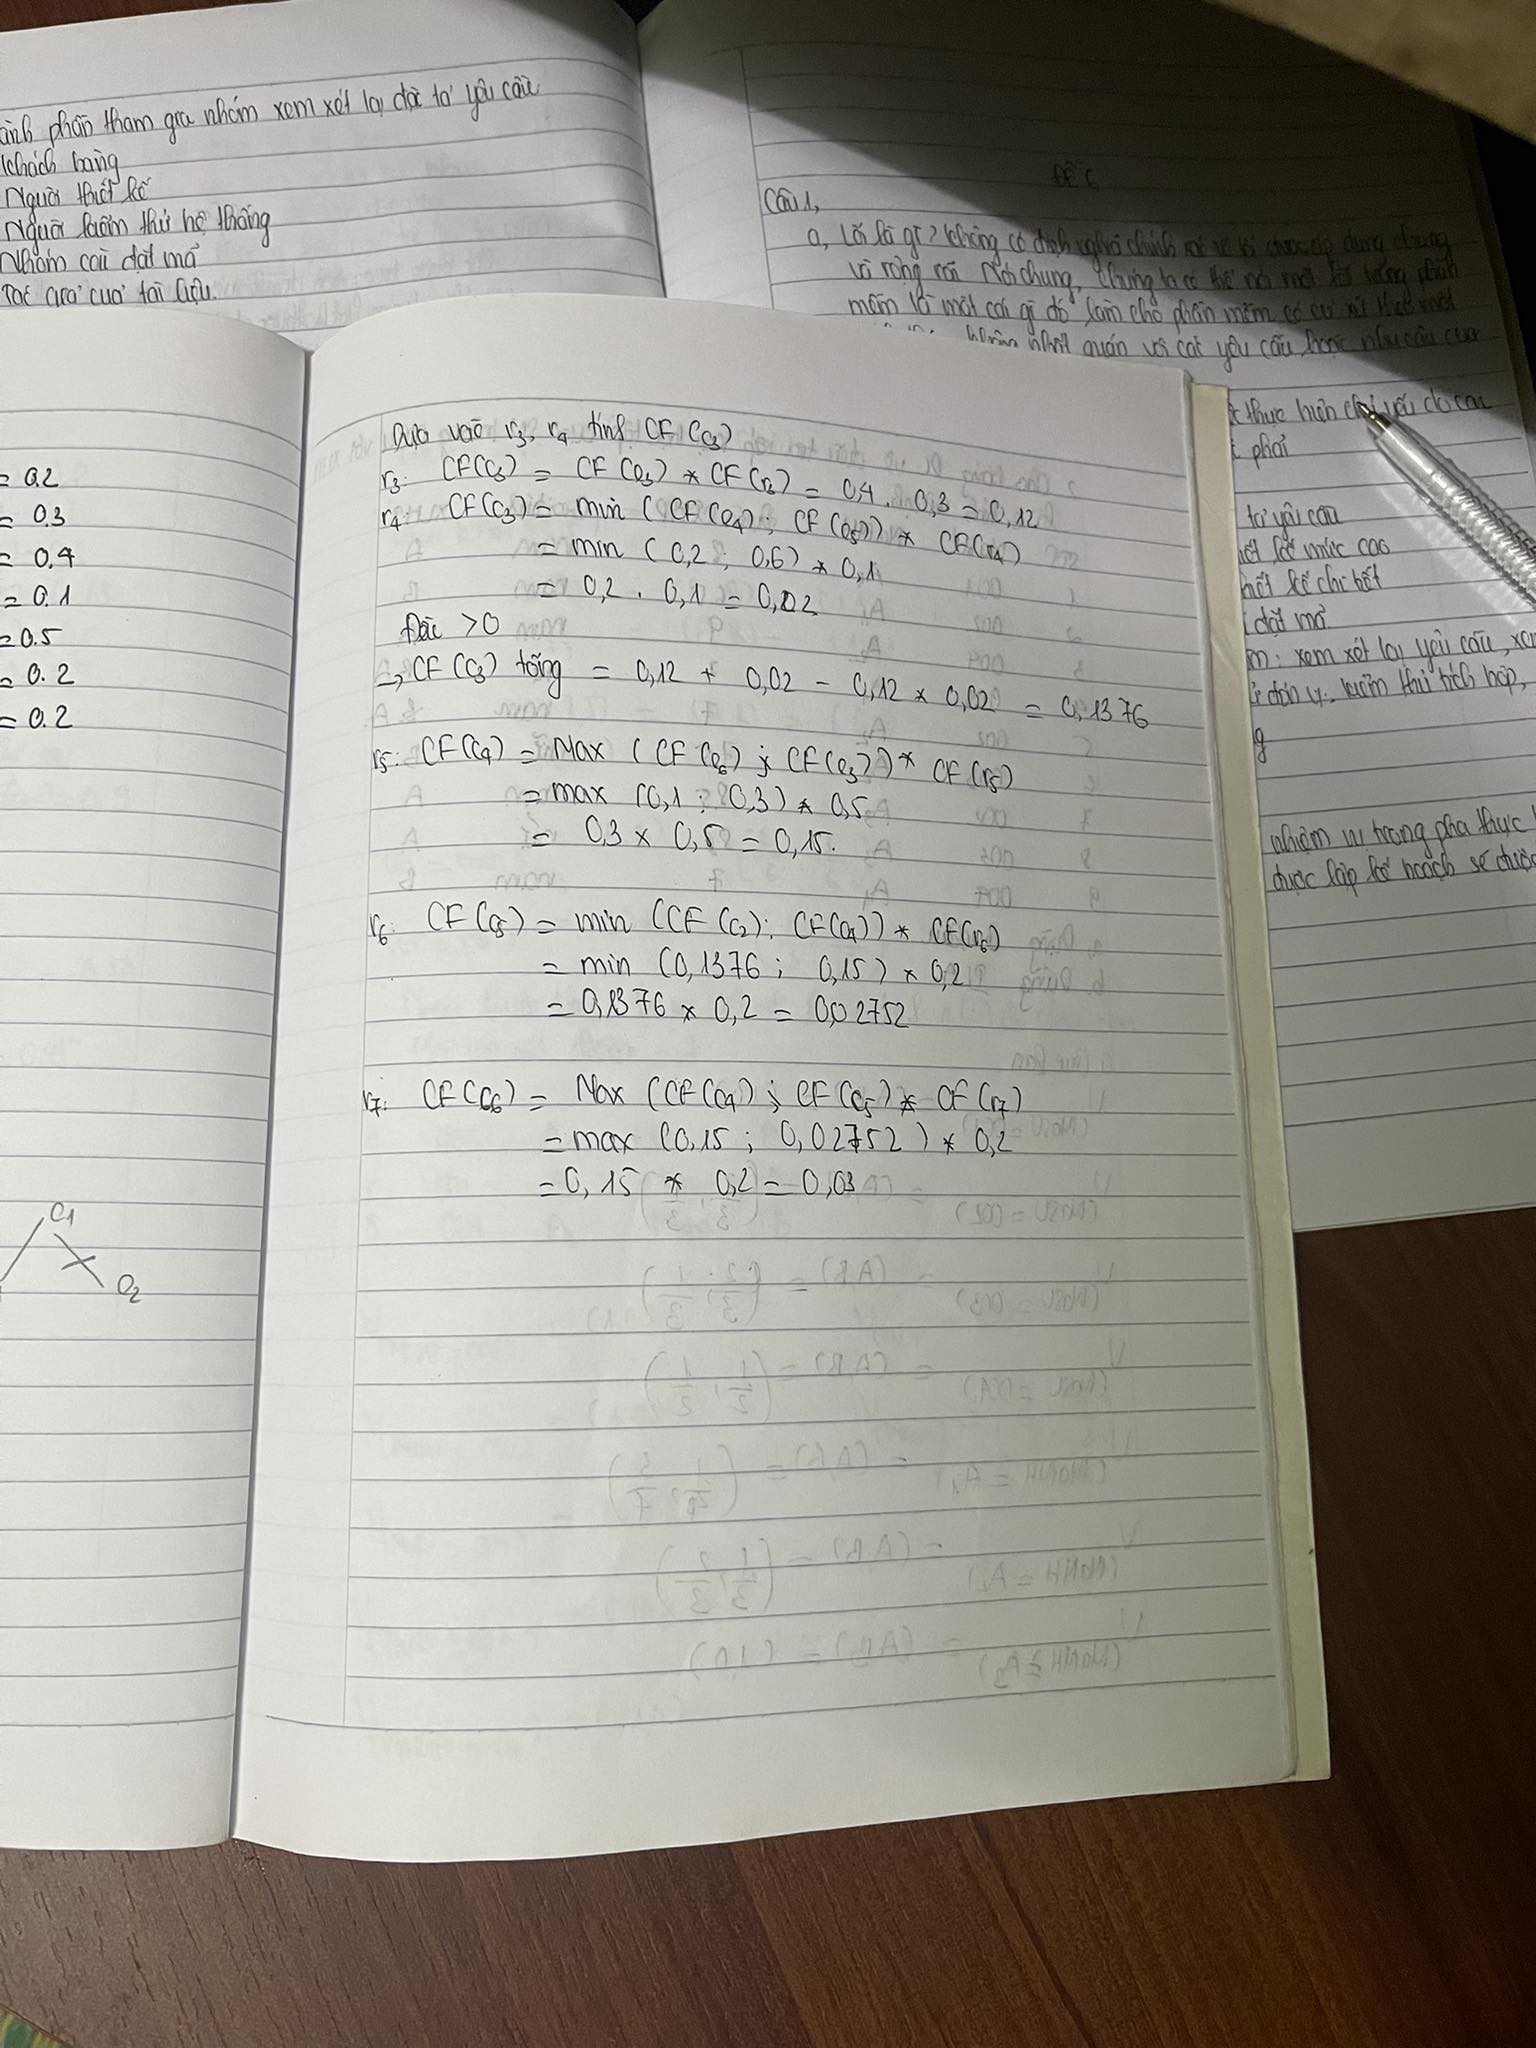 phần tham gia nhóm xem xét lại đặc tả yêu cầu
khách hàng
Người thiết kế
Người kiểm thử hệ thống
Nhóm cài đặt mã
Tác giả của tài liệu.
Đề 6
Câu 1,
a, Lỗi là gì? không có định nghĩa chính về lỗi được áp dụng chung
và rộng rãi. Nói chung, chúng ta có thể nói một lỗi trong phần
mềm là một cái gì đó làm cho phần mềm có cư xử theo một
không nhất quán với các yêu cầu hoặc nhu cầu của
thực hiện chủ yếu do các
phải
tả yêu cầu
kế mức cao
kế chi tiết
đặt mã
xem xét lại yêu cầu,
đơn vị, kiểm thử tích hợp,
g
nhiệm vụ trong pha thực
được lập kế hoạch sẽ được
= 0.2
= 0.3
= 0.4
= 0.1
= 0.5
= 0.2
= 0.2
C1
C2
Dựa vào r3, r4 tính CF (C3)
r3: CF(C3) = CF (e3) * CF (r3) = 0,4 . 0,3 = 0,12
r4: CF(C3) = min (CF(e4); CF(e5)) * CF(r4)
= min (0,2 ; 0,6) * 0,1
= 0,2 . 0,1 = 0,02
Đều >0
→ CF(C3) tổng = 0,12 + 0,02 - 0,12 x 0,02 = 0,1376
r5: CF(C4) = Max (CF(e6) ; CF(e3)) * CF(r5)
= max (0,1 ; 0,3) * 0,5
= 0,3 x 0,5 = 0,15.
r6: CF(C5) = min (CF(C2); CF(C4)) * CF(r6)
= min (0,1376 ; 0,15) x 0,2
= 0,1376 x 0,2 = 0,02752
r7: CF(C6) = Max (CF(C4) ; CF(C5) * CF(r7)
= max (0,15 ; 0,02752) * 0,2
= 0,15 * 0,2 = 0,03